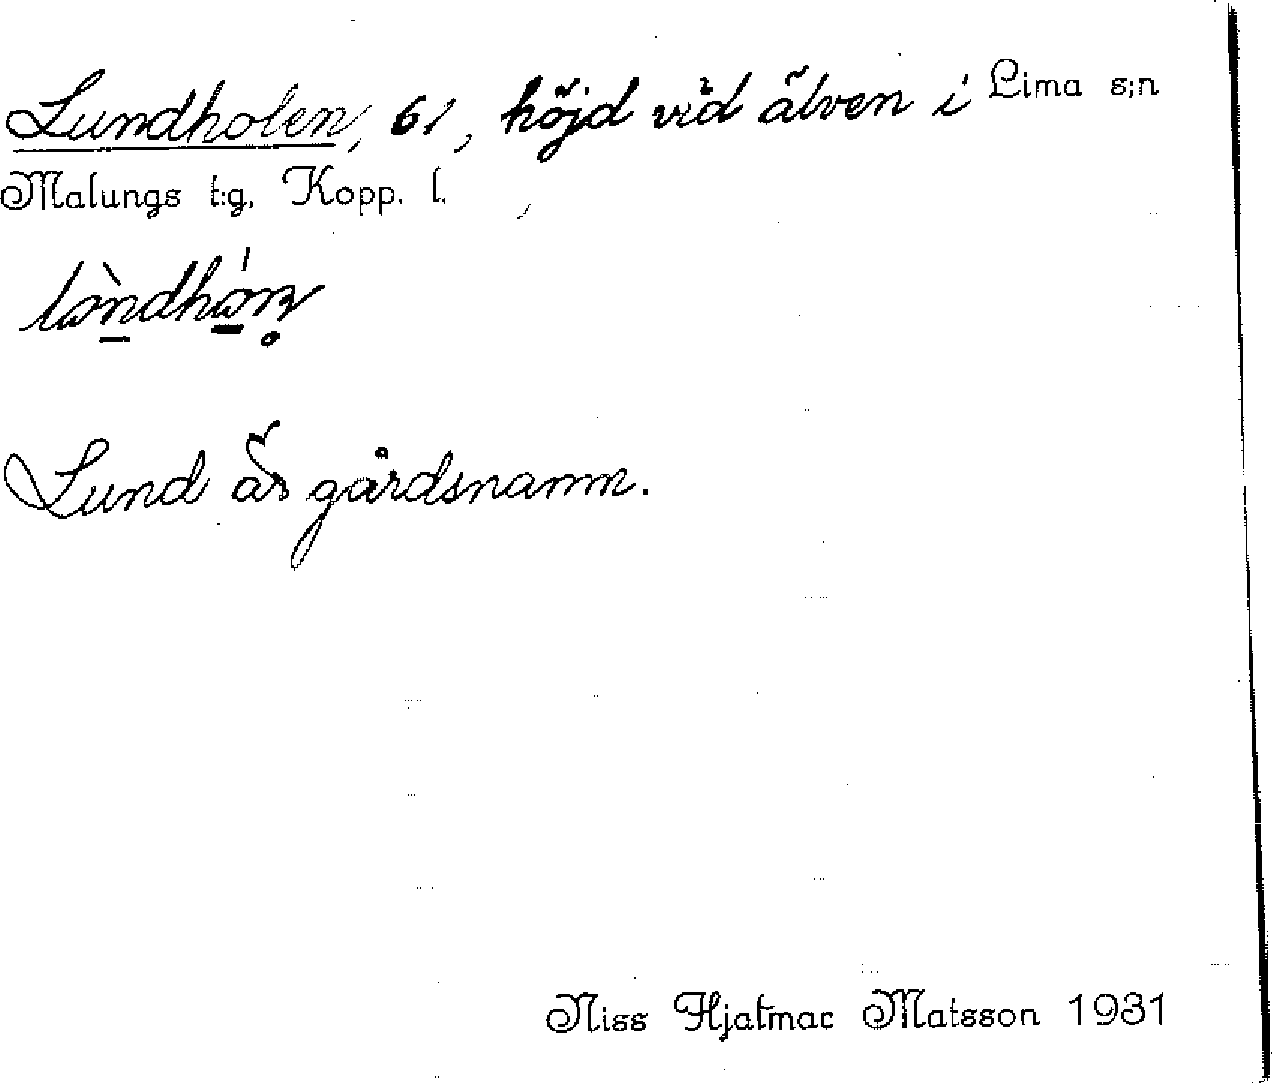 Lundholen, 61, höjd vid älven i Lima s:n
Malungs t:g, Kopp. l.
Lund är gårdsnamn.
Niss Hjalmar Matsson 1931